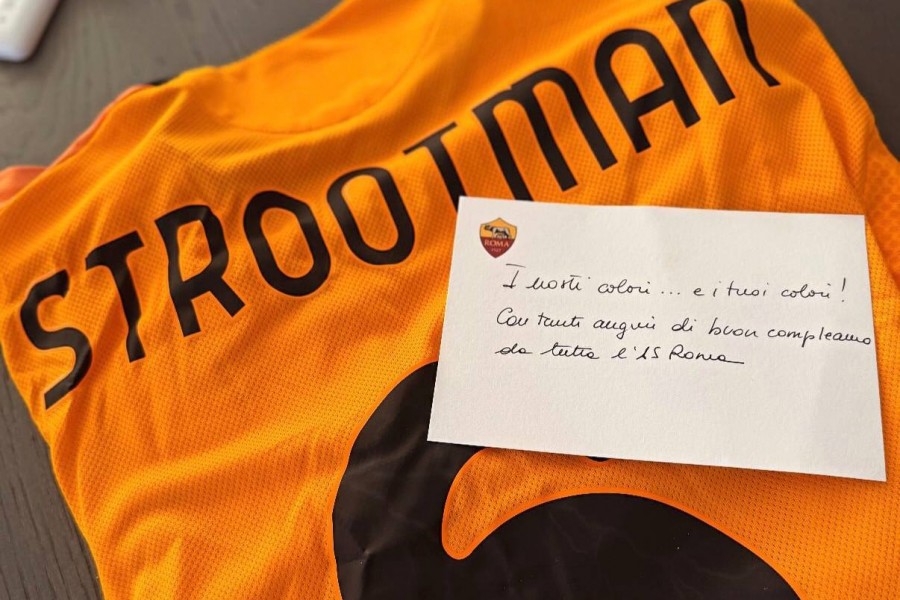 STROOTMAN
ROMA
I nostri colori ... e i tuoi colori!
Con tanti auguri di buon compleanno
da tutta l'AS Roma